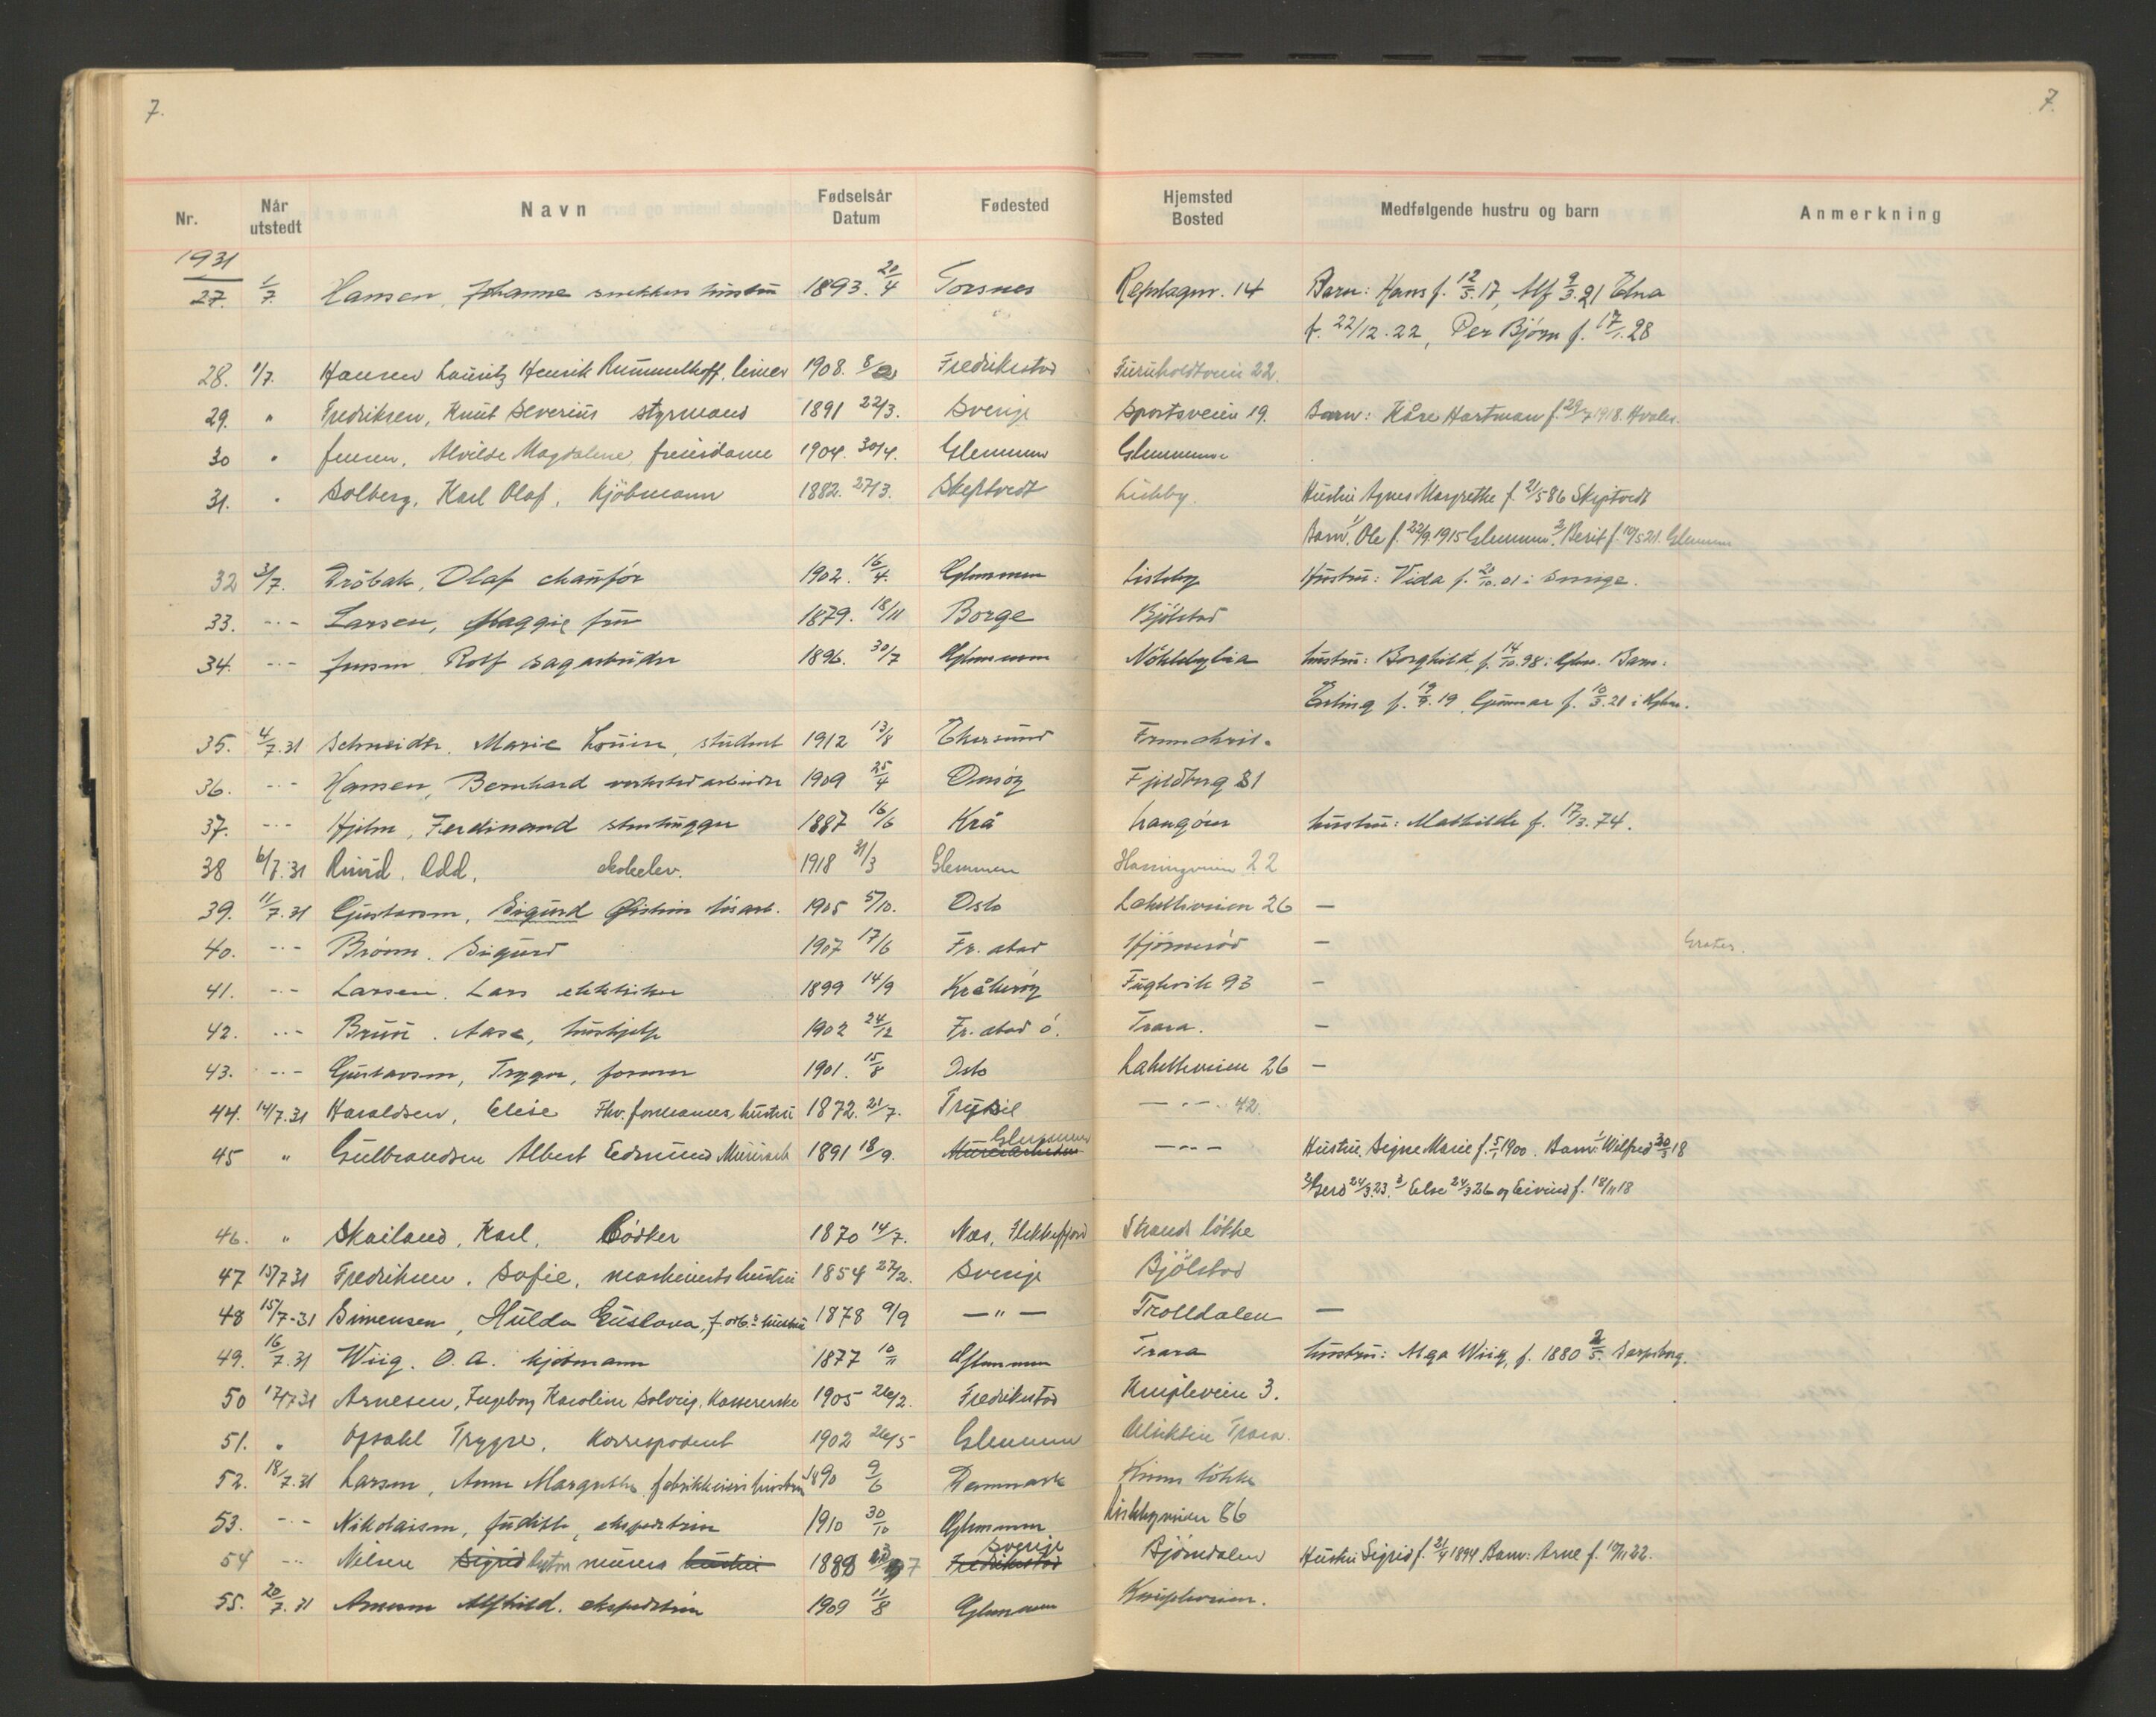 7. 7.
Nr. Når utstedt Navn Fødselsår Datum Fødested Hjemsted Bosted Medfølgende hustru og barn Anmerkning
1931
27. 1/7. Hansen, Johanne snekkers hustru 1893. 20/4 Torsnes Repslagerv. 14 Barn: Hans f. 12/5.17, Alf 9/3.21 Edna
f. 22/12.22, Per Bjørn f. 17/1.28
28. 1/7. Hansen Lauritz Henrik Rummelhoff. 1908. 8/2 Fredrikstad Furuholdtveien 22.
29. " Fredriksen, Knut Severius styrmand 1891 22/3. Sverige Sportsveien 19. Barn: Kåre Hartman f. 29/7 1918. Hvaler.
30 " Jensen, Alvilde Magdalene, frisørdame 1904. 30/4. Glemmen Glemmen
31. " Solberg, Karl Olaf, Kjøbmann 1882. 27/3. Skeptvedt Lisleby. Hustru Agnes Margrethe f. 21/5 86 Skiptvedt
Barn. 1/ Ole f. 22/9.1915 Glemmen. 2/ Berit f. 10/5 21. Glemmen
32 3/7. Drøbak, Olaf chauffør 1902. 16/4. Glemmen Lisleby Hustru: Vida f. 20/10.01 i Sverige.
33. -"- Larsen, Maggie fru 1879. 18/11 Borge Bjølstad
34. -"- Jensen, Rolf sagarbeider 1896. 30/7 Glemmen Nøkledybia hustru: Borghild, f. 14/10.98 i Glem. Barn:
Erling f. 19/7.19 Gunnar f. 10/3.21 i Glem.
35. 4/7.31 Schneider, Marie Louise, student 1912 13/8 Ekersund
36. -"- Hansen, Bernhard verkstedarbeider 1909 25/4 Onsøy Fjeldberg 81
37. -"- Hjelm, Ferdinand stenhugger 1887 16/6 Krå Langøen hustru: Mathilde f. 17/3.74.
38 6/7.31 Ruud, Odd, skoleelev. 1918 31/3 Glemmen Hassingveien 22
39. 11/7.31 Gustavsen, Sigurd Øistein løsarb. 1905 5/10. Oslo Lahelleveien 26 —
40. -"- Brønn, Sigurd 1907 17/6 Fr.stad Hjørnerød — Gratis.
41. -"- Larsen, Lars elektriker 1899 14/9 Kråkerøy Fuglevik 93 —
42. -"- Bruu, Aase, hushjelp 1902 24/12 Fr.stad ö. Trara. —
43. -"- Gustavsen, Trygve, former 1901. 15/8 Oslo Lahelleveien 26 —
44. 14/7.31 Haraldsen, Elise Fhv. formanns hustru 1872. 21/7. Trysil — " — 42.
45 " Gulbrandsen Albert Edmund Murerarb 1891 18/9. Murerarbeider Glemmen — " — Hustru. Signe Marie f. 5/1 1900. Barn: 1/ Wilfred 30/3 18
2/ Gerd 24/3.23. 3/ Else 24/3 26 og Eivind f. 18/11 18
46. " Skailand, Karl, Bødker 1870 14/7. Nes, Flekkefjord Strands løkke
47 15/7 31 Fredriksen, Sofie, maskinists hustru 1854 27/2. Sverige Bjølstad
48 15/7-31 Simensen, Hulda Gustava, f.arb.s hustru 1878 9/9 — " — Trolldalen —
49. 16/7.31 Wiig, O. A. kjøbmann 1877 10/11 Glemmen Trara hustru: Alga Wiig, f. 1880 2/5. Sarpsborg.
50 17/7 31 Arnesen, Ingeborg Karoline Solveig, Kassererske 1905 26/2. Fredrikstad Knipleveien 3.
51. " Opsahl Trygve, Korrespondent 1902 26/5 Glemmen Trara.
52. 18/7.31 Larsen, Anna Margrethe, fabrikkeiers hustru 1890 9/6 Danmark løkke
53. -"- Nikolaisen, Judith, ekspeditrise 1910 30/10 Glemmen Lislebyveien 86
54 -"- Nilsen Sigrid murers hustru 1888 Fredrikstad Sverige Bjørndalen Hustru Sigrid f. 21/4 1894. Barn: Arne f. 10/11 22.
55. 20/7.31 Arnesen Alfhild, ekspeditrise 1909 11/8 Glemmen Knipleveien.